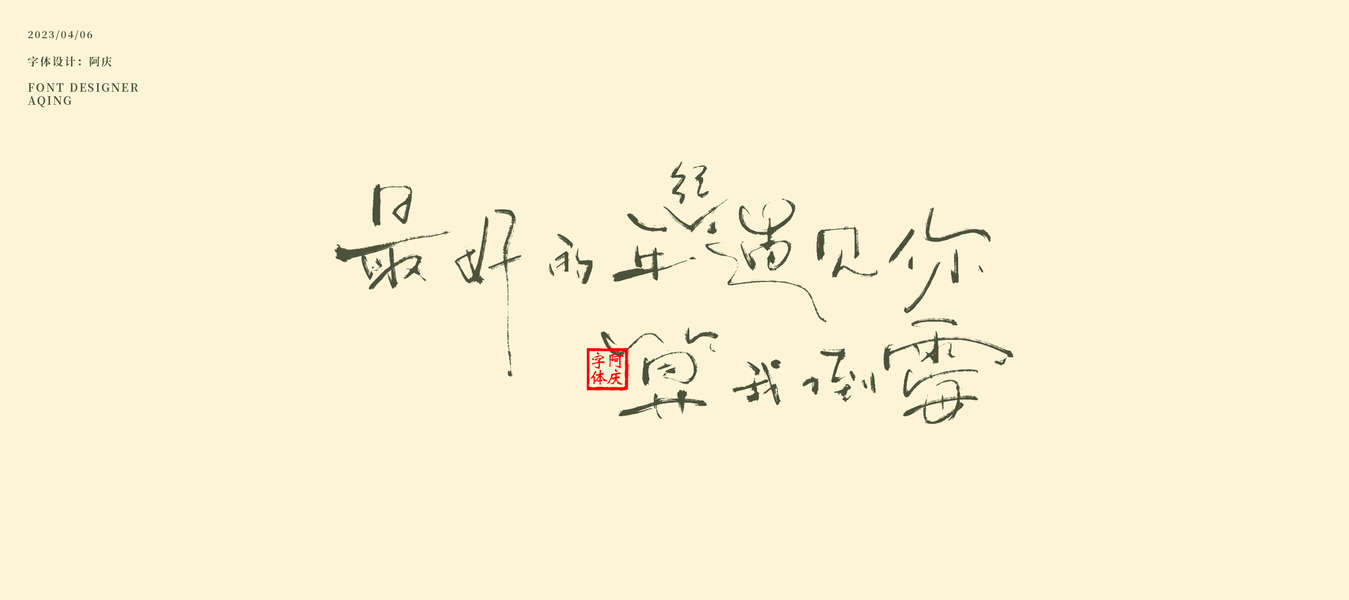 2023/04/06
字体设计：阿庆
FONT DESIGNER
AQING
最好的年经遇见你
算我倒霉
阿庆
字体